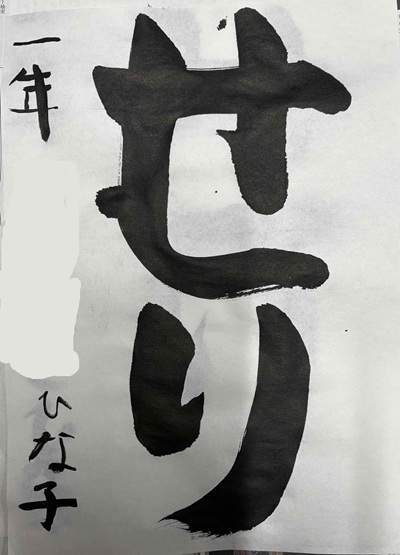 せり
一年
ひな子